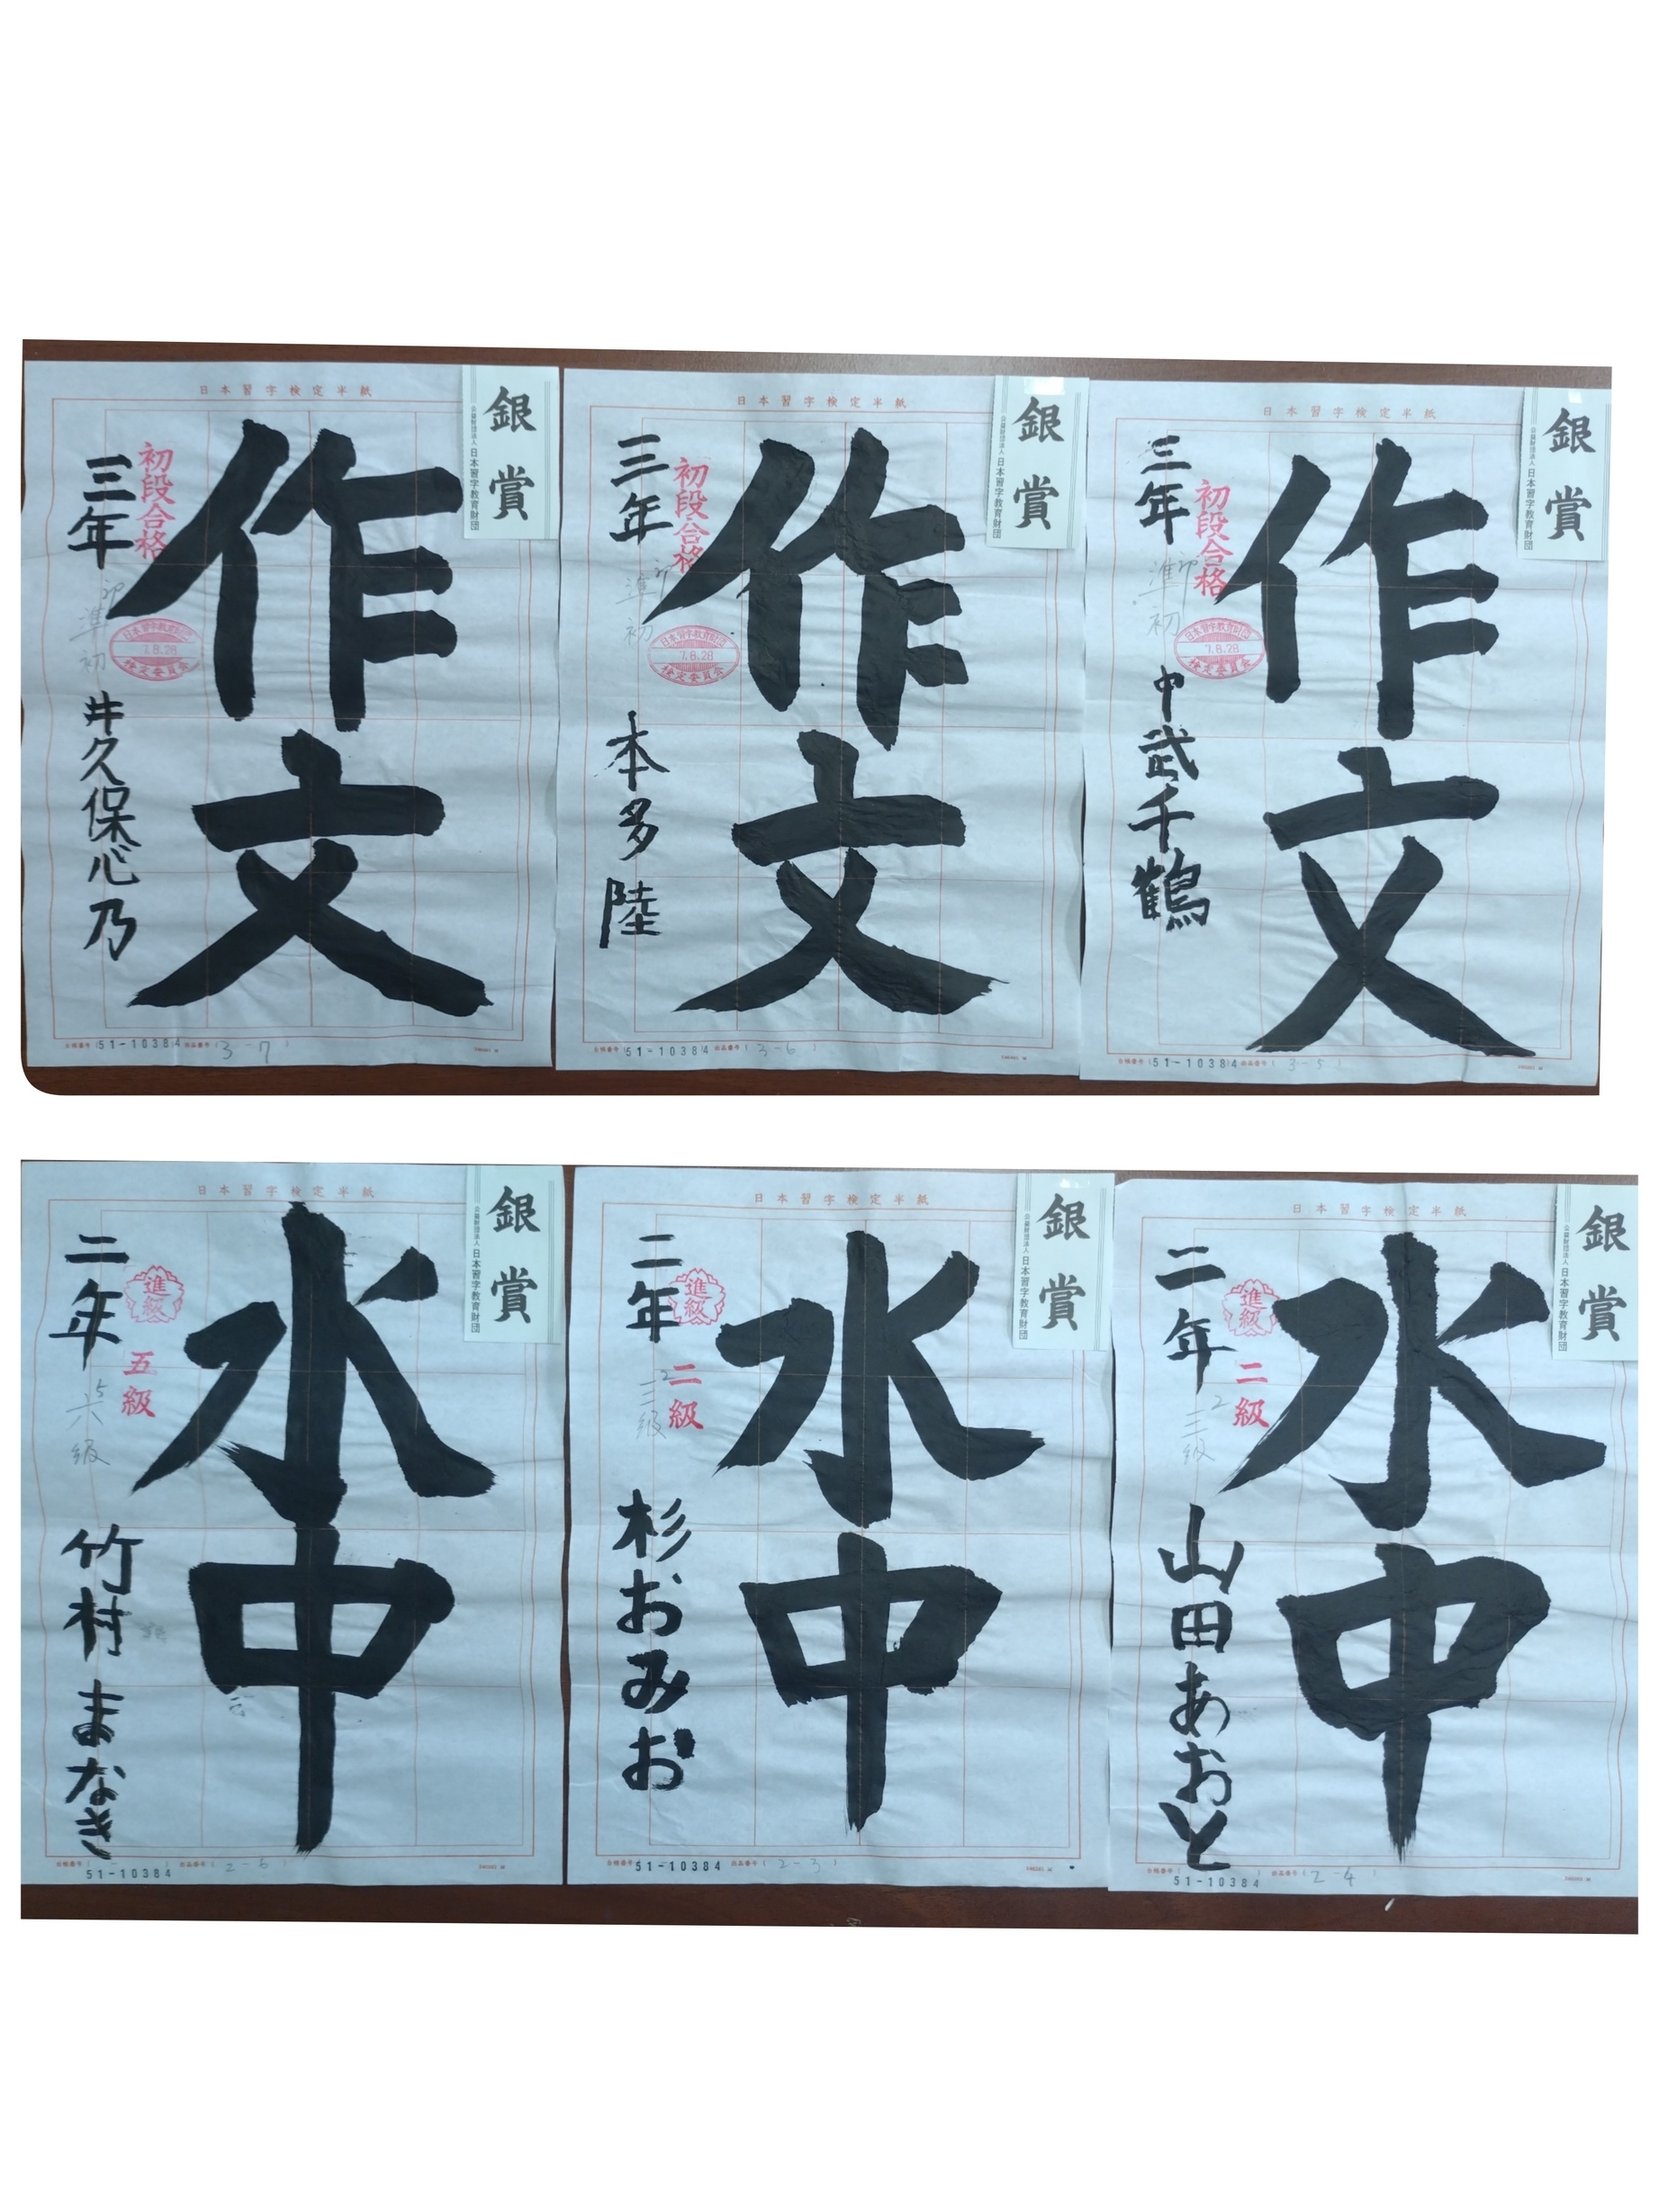 日本習字検定半紙
銀賞
公益財団法人 日本習字教育財団
作文
初段合格
三年
準初
日本習字教育財団
7.8.28
検定委員会
井久保心乃
51-10384
出品番号(3-7)
日本習字検定半紙
銀賞
公益財団法人 日本習字教育財団
作文
初段合格
三年
準初
日本習字教育財団
7.8.28
検定委員会
本多陸
51-10384
出品番号(3-6)
日本習字検定半紙
銀賞
公益財団法人 日本習字教育財団
作文
初段合格
三年
準初
日本習字教育財団
7.8.28
検定委員会
中武千鶴
51-10384
出品番号(3-5)
日本習字検定半紙
銀賞
公益財団法人 日本習字教育財団
水中
進級
五級
二年
5
六級
竹村まなき
51-10384
出品番号(2-6)
日本習字検定半紙
銀賞
公益財団法人 日本習字教育財団
水中
進級
二級
二年
2
三級
杉おみお
51-10384
出品番号(2-3)
日本習字検定半紙
銀賞
公益財団法人 日本習字教育財団
水中
進級
二級
二年
2
三級
山田あおと
51-10384
出品番号(2-4)